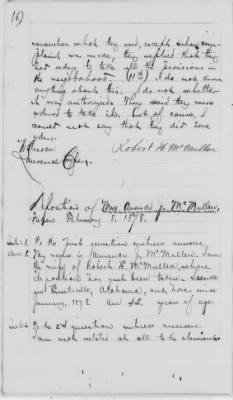 (16)
remember what they said, except when com-
plaint was made, they replied that they
had orders to take all the provisions in
the neighborhood. (11th) I do not know
anything about this. I do not whether
it was authorized. They said they were
ordered to take it, but, of course, I
cannot say that they did have
orders.
Robert H. McMullen
Witness:
Lawrence
Deposition of Miss Amanda J. McMullen,
taken February 5. 1878.
Int. 1. To the first question witness answers,
Ans. 1. My name is Amanda J. McMullen. I am
the niece of Robert H. McMullen, whose
deposition has just been taken. I reside
Huntsville, Alabama, and have since
January, 1872 and years of age
Int. 2. To the 2nd question witness answers:
I am not related at all to the claimants